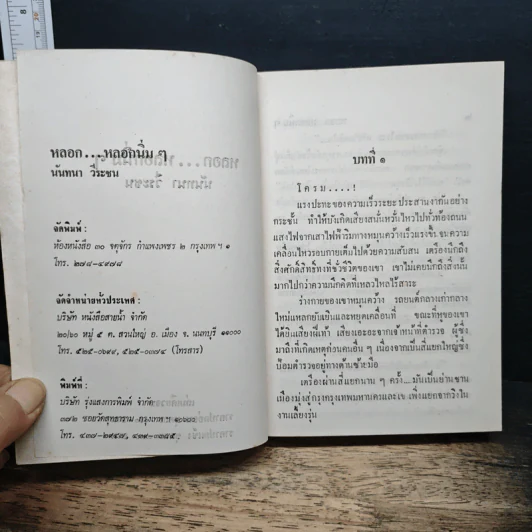 หลอก...หลอกนิ่ม ๆ
นันทนา วีระชน
จัดพิมพ์ :
ห้องหนังสือ ๓๐ จตุจักร กำแพงเพชร ๒ กรุงเทพ ฯ ๑
โทร. ๒๗๘-๔๙๗๘
จัดจำหน่ายทั่วประเทศ :
บริษัท หนังสือสายน้ำ จำกัด
๒๐/๖๐ หมู่ ๕ ต. สวนใหญ่ อ. เมือง จ. นนทบุรี ๑๑๐๐๐
โทร. ๕๒๕-๐๖๙๙, ๕๒๕-๐๐๗๔ (โทรสาร)
พิมพ์ที่ :
บริษัท รุ่งแสงการพิมพ์ จำกัด
๓๗๒ ซอยวัดสุทธาราม กรุงเทพ ฯ ๑๐๖๐๐
โทร. ๔๓๗-๒๙๔๗,
บทที่ ๑
โครม....!
แรงปะทะของความเร็วระยะประสานงากันอย่าง
กระชั้น ทำให้บังเกิดเสียงสนั่นหวั่นไหวไปทั่วท้องถนน
แสงไฟจากเสาไฟฟ้าริมทางหมุนคว้างเร็วแรงขึ้น จนความ
เคลื่อนไหวรอบกายเต็มไปด้วยความสับสน เตรืองนึกถึง
สิ่งศักดิ์สิทธิ์ทั้งที่ชั่วชีวิตของเขา เขาไม่เคยนึกถึงสิ่งนั้น
มากไปกว่าความนึกคิดที่เหลวไหลไร้สาระ
ร่างกายของเขาหมุนคว้าง รถยนต์กลางเก่ากลาง
ใหม่แหลกยับเยินและหยุดเคลื่อนที่ ขณะที่หูของเขา
ได้ยินเสียงฝีเท้า เสียงเอะอะจากเจ้าหน้าที่ตำรวจ ผู้ซึ่ง
มาถึงที่เกิดเหตุก่อนคนอื่น ๆ เนื่องจากเป็นสี่แยกใหญ่ซึ่ง
ป้อมตำรวจอยู่ทางด้านซ้ายมือ
เตรืองผ่านสี่แยกนาน ๆ ครั้ง...มันเป็นย่านชาน
เมืองมุ่งสู่กรุงกรุงเทพมหานครและเขาเพิ่งแยกจากริงใน
งานเลี้ยงรุ่น